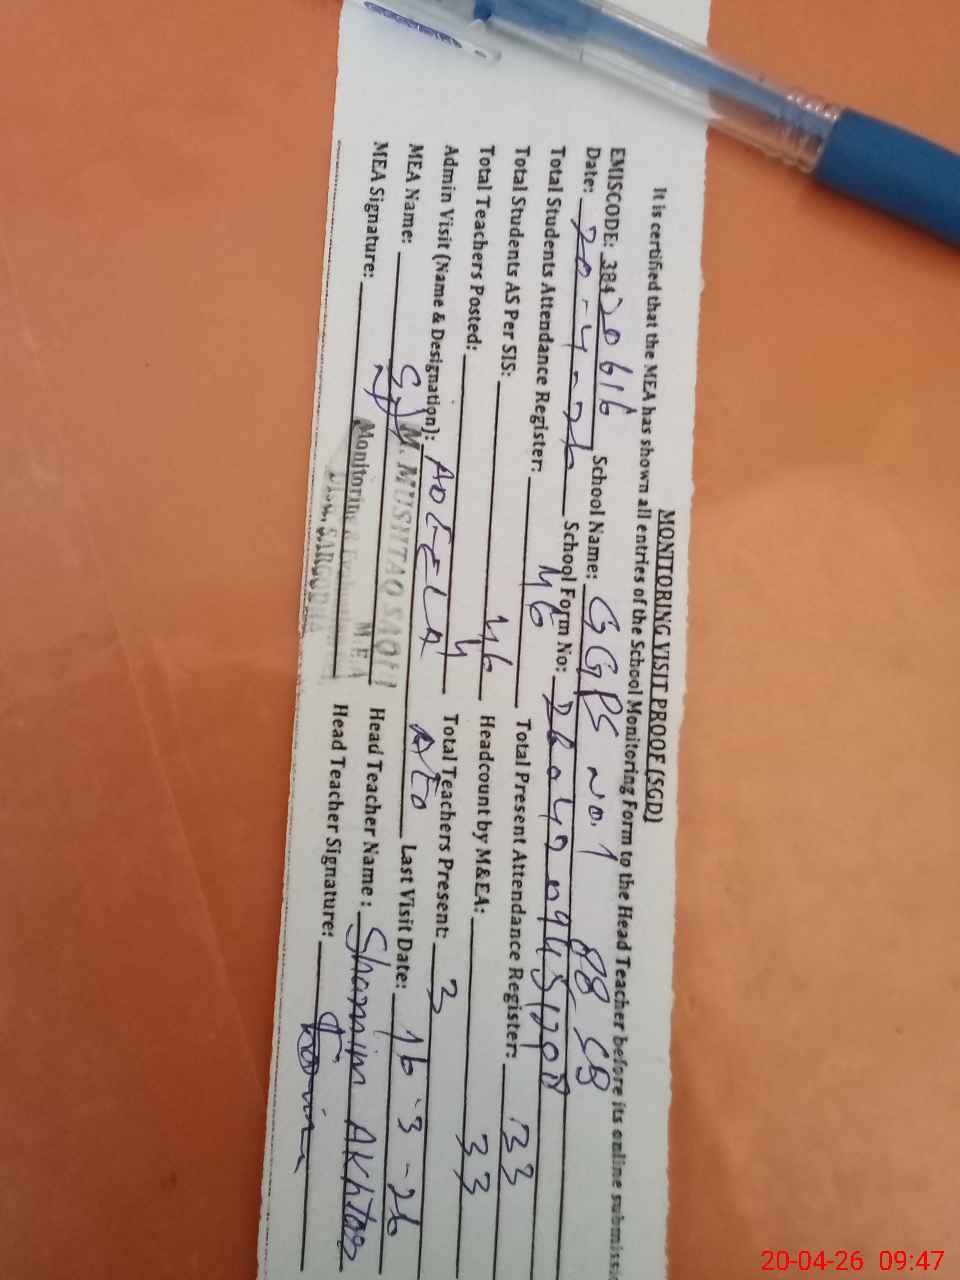 MONITORING VISIT PROOF (SGD)
It is certified that the MEA has shown all entries of the School Monitoring Form to the Head Teacher before its online submissi
EMISCODE: 38420616 School Name: GGPS No.1 88 SB
Date: 20-4-26 School Form No:
Total Students Attendance Register: 46 Total Present Attendance Register: 33
Total Students AS Per SIS: 46 Headcount by M&EA: 33
Total Teachers Posted: 4 Total Teachers Present: 3
Admin Visit (Name & Designation): AEO Last Visit Date: 16-3-26
MEA Name: M. MUSHTAQ Head Teacher Name: Shamim Akhtar
MEA Signature: Head Teacher Signature:
M.E.A
Monitoring &
SARGODHA
20-04-26 09:47